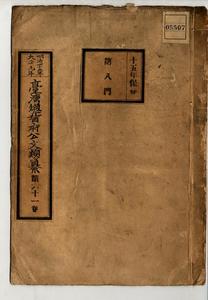 05507
十五年保存
第八門
明治三十八年
大正元年
臺灣總督府公文類纂
第六十一卷